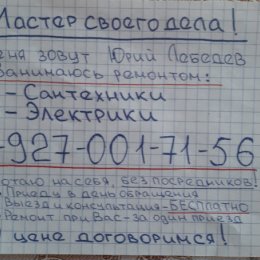 Мастер своего дела!
еня зовут Юрий Лебедев
Занимаюсь ремонтом:
- Сантехники
- Электрики
-927-001-71-56
отаю на себя, без посредников!
Приеду в день обращения
Выезд и консультация - БЕСПЛАТНО
Ремонт при Вас - за один приезд
цене договоримся!